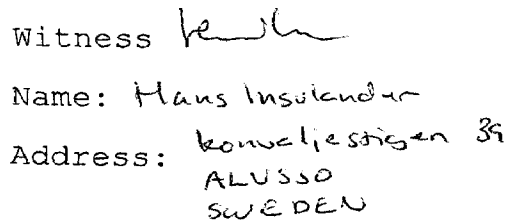 Witness
Name: Hans Insulander
Address: Konveljestigen 39
ALVSJO
SWEDEN